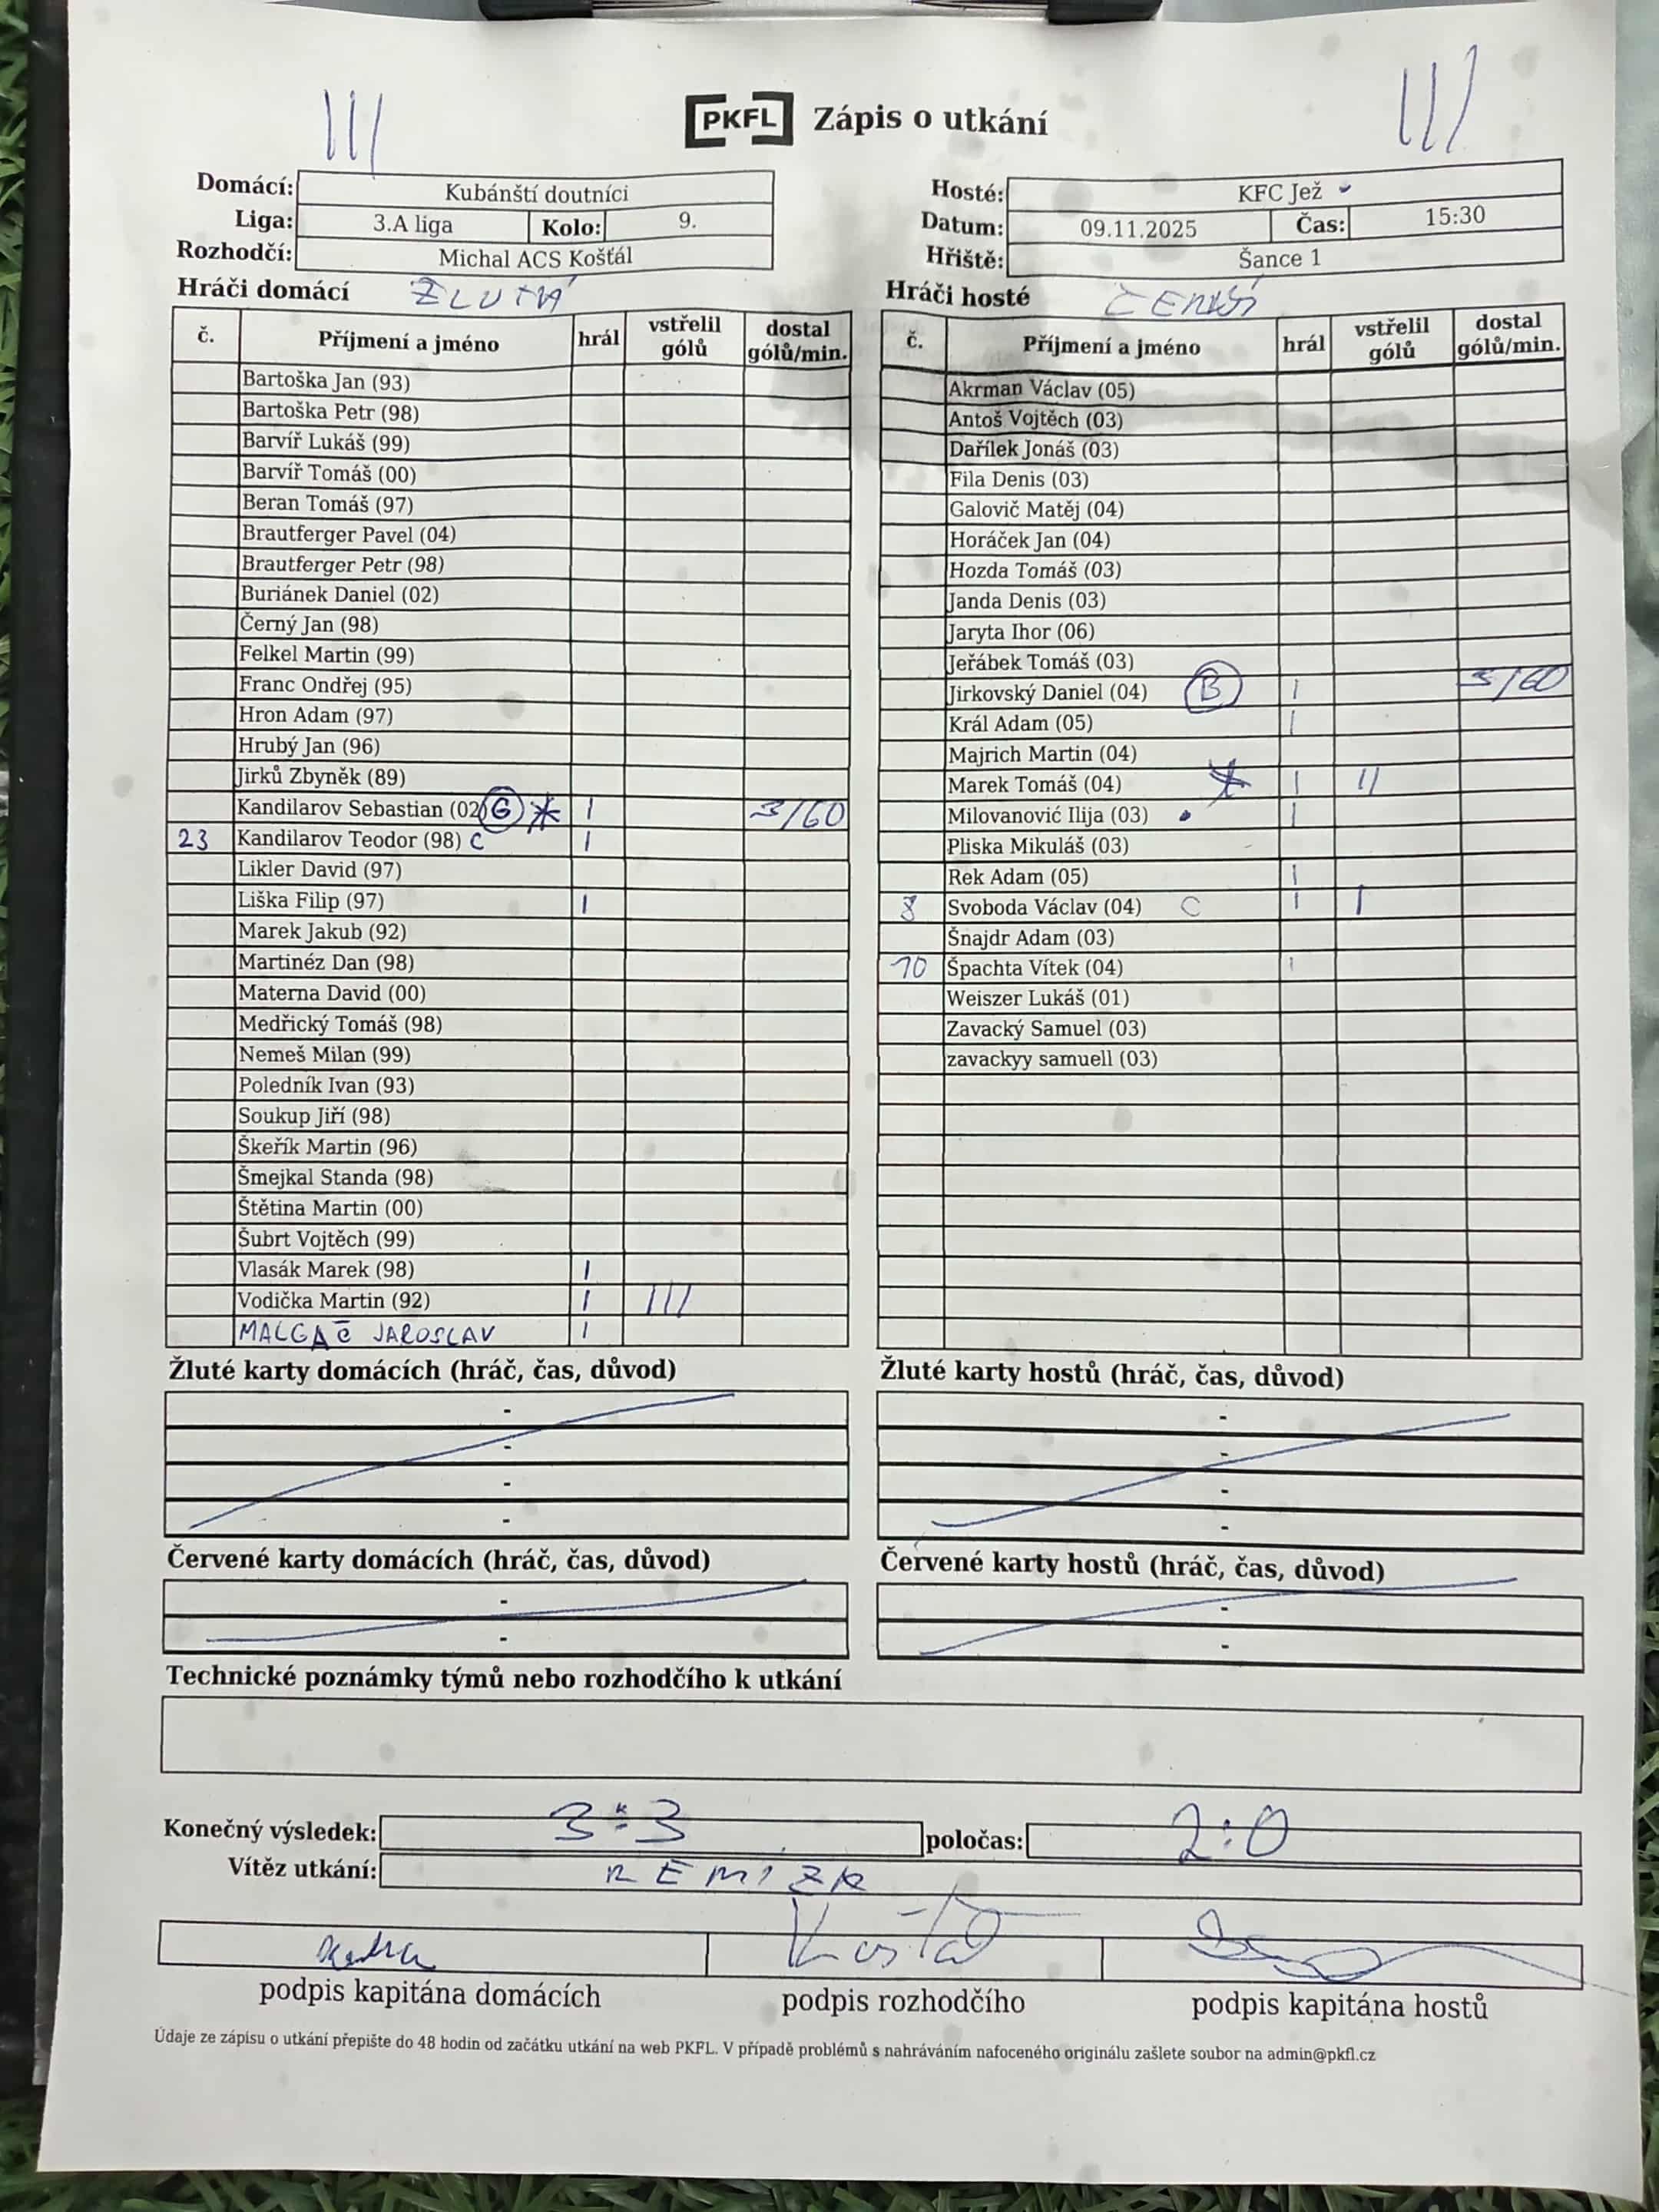 ||| |||
PKFL Zápis o utkání
Domácí: Kubánští doutníci
Liga: 3.A liga Kolo: 9.
Rozhodčí: Michal ACS Košťál
Hosté: KFC Jež
Datum: 09.11.2025 Čas: 15:30
Hřiště: Šance 1
Hráči domácí ŽLUTÁ
č. Příjmení a jméno hrál vstřelil gólů dostal gólů/min.
Bartoška Jan (93)
Bartoška Petr (98)
Barvíř Lukáš (99)
Barvíř Tomáš (00)
Beran Tomáš (97)
Brautferger Pavel (04)
Brautferger Petr (98)
Buriánek Daniel (02)
Černý Jan (98)
Felkel Martin (99)
Franc Ondřej (95)
Hron Adam (97)
Hrubý Jan (96)
Jirků Zbyněk (89)
Kandilarov Sebastian (02) G * | 3/60
23 Kandilarov Teodor (98) C |
Likler David (97)
Liška Filip (97) |
Marek Jakub (92)
Martinéz Dan (98)
Materna David (00)
Medřický Tomáš (98)
Nemeš Milan (99)
Poledník Ivan (93)
Soukup Jiří (98)
Škeřík Martin (96)
Šmejkal Standa (98)
Štětina Martin (00)
Šubrt Vojtěch (99)
Vlasák Marek (98) |
Vodička Martin (92) | |||
MALGAČ JAROSLAV |
Hráči hosté
č. Příjmení a jméno hrál vstřelil gólů dostal gólů/min.
Akrman Václav (05)
Antoš Vojtěch (03)
Dařílek Jonáš (03)
Fila Denis (03)
Galovič Matěj (04)
Horáček Jan (04)
Hozda Tomáš (03)
Janda Denis (03)
Jaryta Ihor (06)
Jeřábek Tomáš (03)
Jirkovský Daniel (04) B | 3/60
Král Adam (05) |
Majrich Martin (04)
Marek Tomáš (04) * | ||
Milovanović Ilija (03) |
Pliska Mikuláš (03)
Rek Adam (05) |
8 Svoboda Václav (04) C | |
Šnajdr Adam (03)
10 Špachta Vítek (04) |
Weiszer Lukáš (01)
Zavacký Samuel (03)
zavackyy samuell (03)
Žluté karty domácích (hráč, čas, důvod)
-
-
-
-
Žluté karty hostů (hráč, čas, důvod)
-
-
-
-
Červené karty domácích (hráč, čas, důvod)
-
-
Červené karty hostů (hráč, čas, důvod)
-
-
Technické poznámky týmů nebo rozhodčího k utkání
Konečný výsledek: 3:3 poločas: 2:0
Vítěz utkání: REMIZA
podpis kapitána domácích podpis rozhodčího podpis kapitána hostů
Údaje ze zápisu o utkání přepište do 48 hodin od začátku utkání na web PKFL. V případě problémů s nahráváním nafoceného originálu zašlete soubor na admin@pkfl.cz